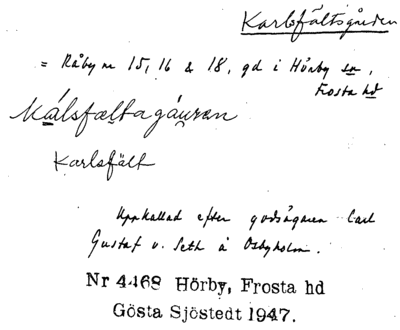 Karlsfältsgården
= Råby nr 15, 16 & 18, gd i Hörby sn,
Frosta hd
Kálsfæltagáuren
Karlsfält
Uppkallad efter godsägaren Carl
Gustaf v. Seth å Osbyholm.
Nr 4468 Hörby, Frosta hd
Gösta Sjöstedt 1947.